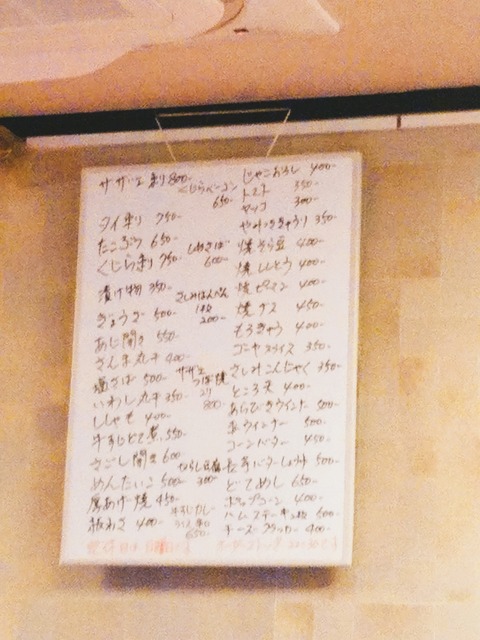 サザエ刺 800-
くじらベーコン
650-
タイ刺 750-
たこぶつ 650-
くじら刺 750-
しめさば
600-
漬け物 350-
ぎょうざ 500-
さしみはんぺん
1枚
200-
あじ開き 550-
さんま丸干 400-
塩さば 500-
いわし丸干 350-
サザエ
つぼ焼
800-
ししゃも 400-
牛すじどて煮 550-
さごし開き 600
めんたいこ 500-
ひやし豆腐
300-
厚あげ焼 450-
板わさ 400-
牛すじカレー
650-
じゃこおろし 400-
トマト 350-
ヤッコ 300-
やみつききゅうり 350-
焼そら豆 400-
焼ししとう 400-
焼ピーマン 400-
焼ナス 450-
もろきゅう 400-
ゴーヤスライス 350-
さしみこんにゃく 350-
ところ天 400-
あらびきウインナー 500-
赤ウィンナー 500-
コーンバター 450-
長芋バターしょうゆ 500-
どてめし 650-
ポップコーン 400-
ハムステーキ 500-
チーズクラッカー 400-